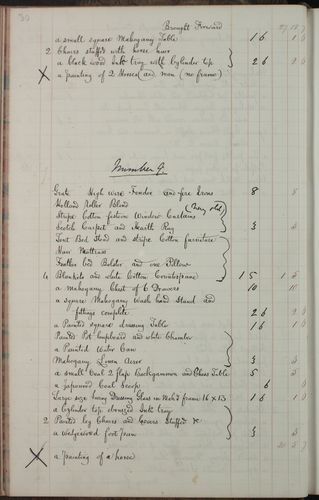 30
Brought Forward
a small square Mahogany Table 1 6
2 Chairs stuffed with horse hair
a black wood Ink tray with Cylinder top 2 6
X a painting of 2 Horses and man (no frame)
Number 9.
Grate High wire Fender and fire Irons 8
Holland Roller Blind
Stripe Cotton festoon Window Curtains (Very old)
Scotch Carpet and Hearth Rug 3
Tent Bed Stead and stripe Cotton furniture
Hair Mattrass
Feather bed Bolster and one Pillow
4 Blankets and white Cotton Counterpane 1 5
a Mahogany Chest of 6 Drawers 10
a square Mahogany Wash hand Stand and
fittings complete 2 6
a Painted square dressing Table 1 6
Painted Pot Cupboard and white Chamber
a Painted Water Can
Mahogany Linen Airer 3
a small Oak 2 flaps Backgammon and Chess Table 5
a japanned Coal Scoop 6
Large size Swing Dressing Glass in Mah'y frame 16 x 13 1 6
a Cylinder top Ink tray
2 Painted leg Chairs and Covers Stuffed
a wedgewood foot pan 3
X a painting of a horse